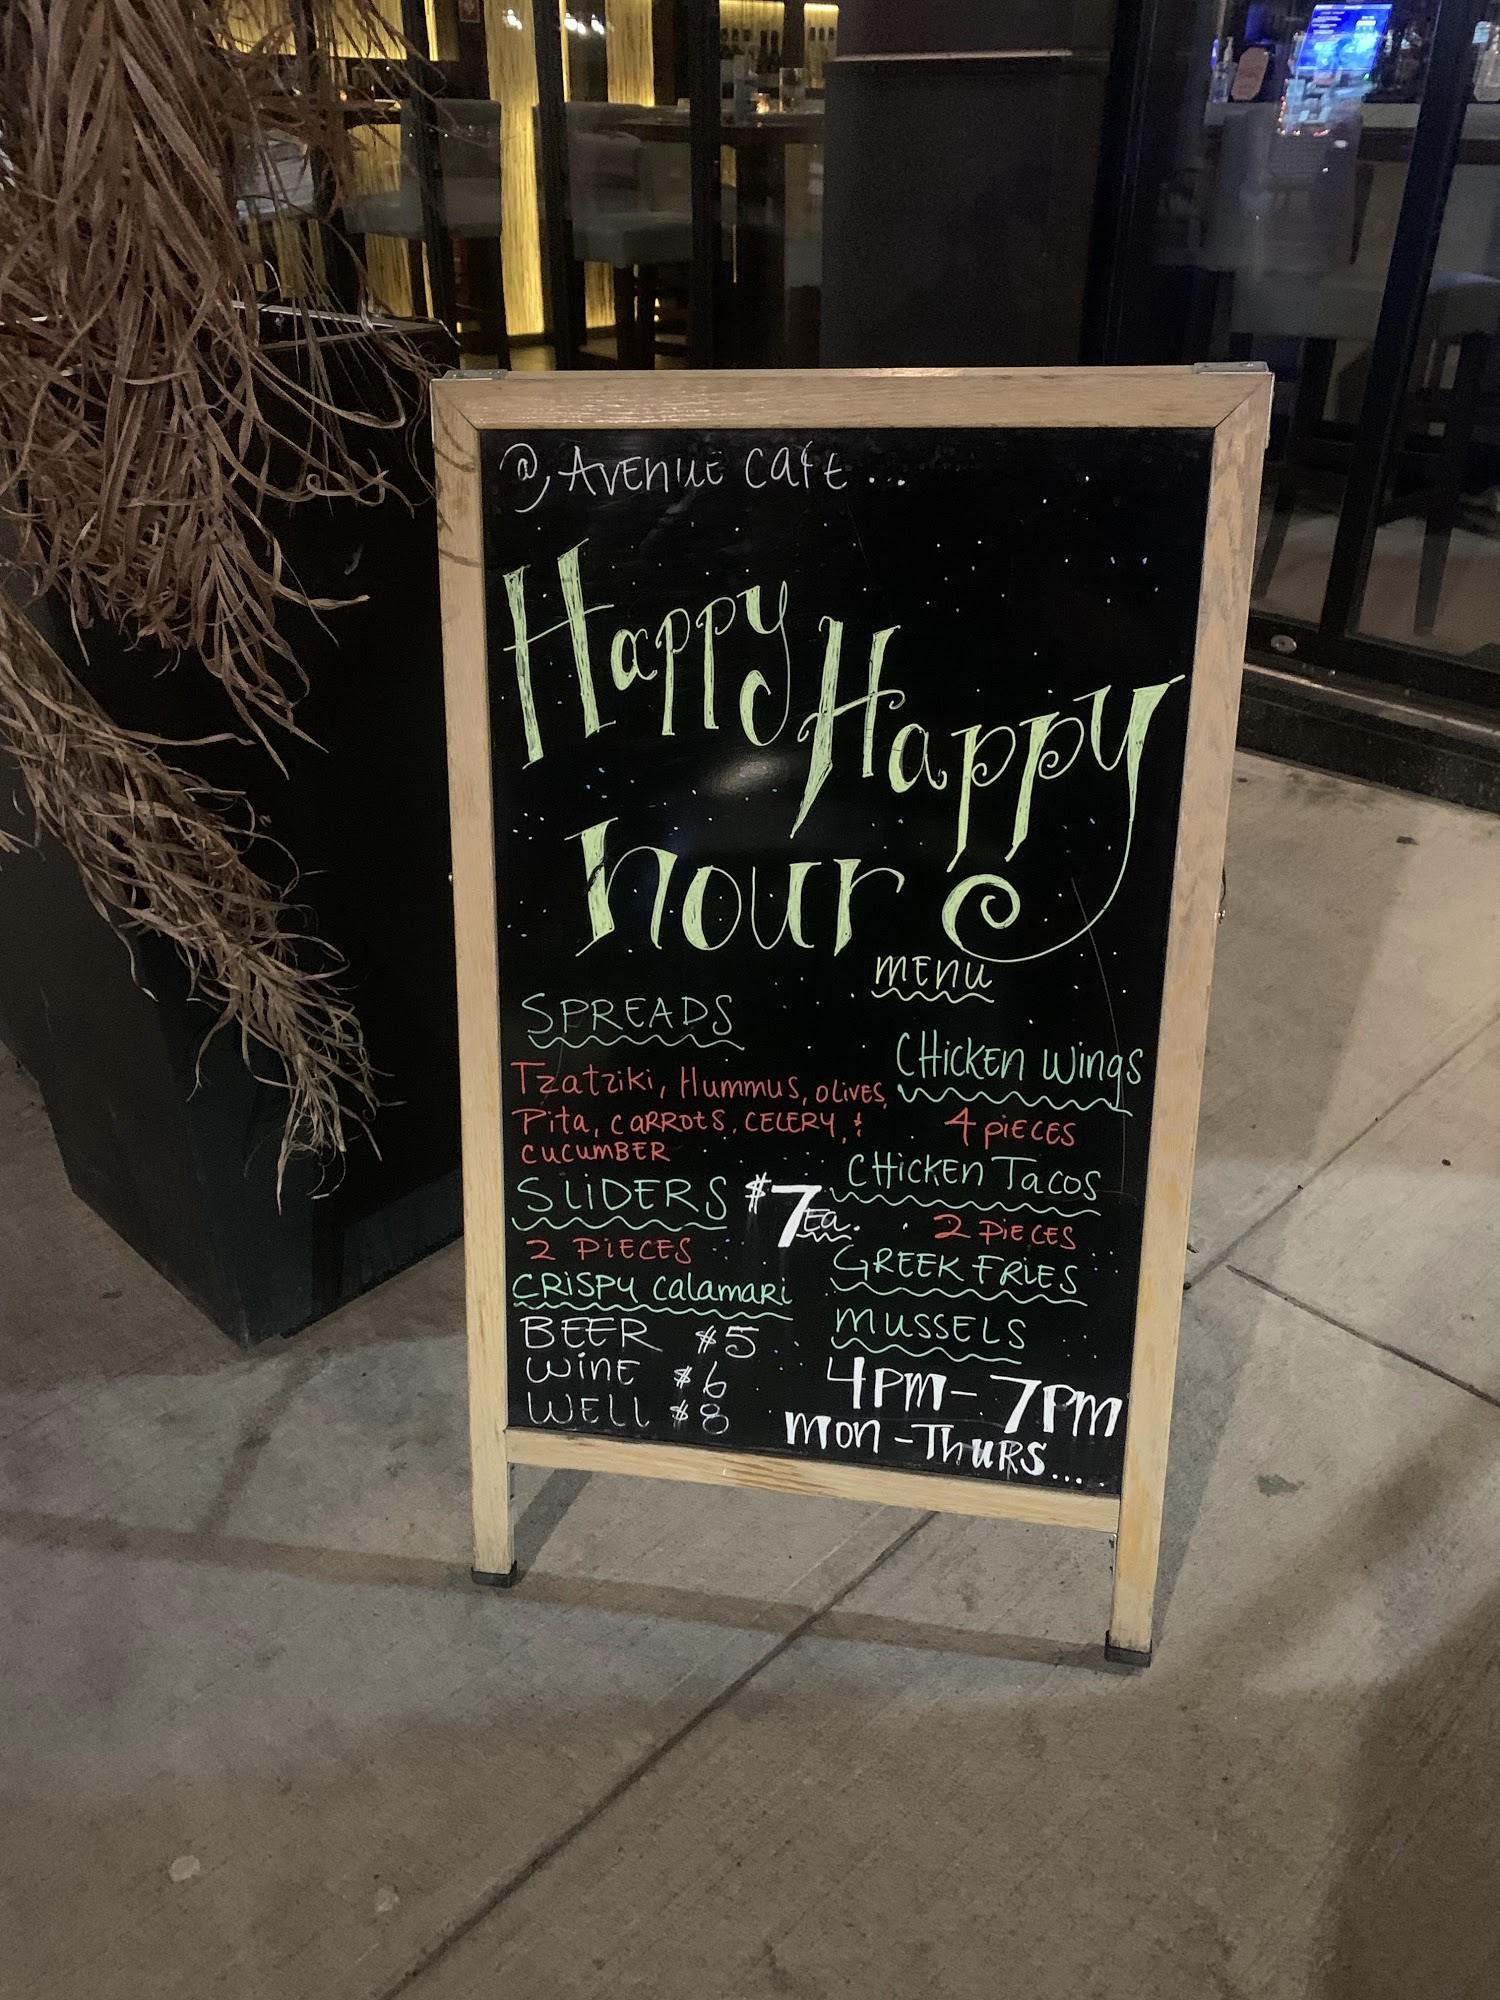 @ AVENUE CAFE...
Happy Happy
hour
MENU
SPREADS
Tzatziki, Hummus, OLIVES,
Pita, CARROTS, CELERY, &
CUCUMBER
SLIDERS
2 PIECES
CRISPY Calamari
$7 Ea.
BEER $5
WINE $6
WELL $8
CHICKEN WINGS
4 PIECES
CHICKEN TACOS
2 PIECES
GREEK FRIES
MUSSELS
4PM-7PM
MON-THURS...